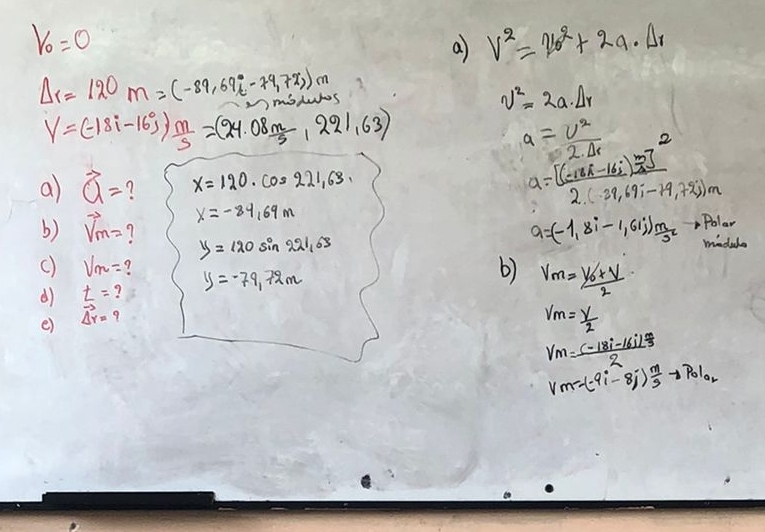 V₀ = 0
Δr = 120 m = (-89,69i - 79,72j) m
módulos
V = (-18i - 16j) m/s = (24.08 m/s, 221,63)
a) a⃗ = ?
b) V⃗m = ?
c) Vm = ?
d) t = ?
e) Δ⃗r = ?
x = 120 . cos 221,63.
x = -89,69 m
y = 120 sin 221,63
y = -79,72 m
a) V² = V₀² + 2a . Δr
V² = 2a . Δr
a = V² / 2 . Δr
a = [(-18i - 16j) m/s]² / 2 . (-89,69i - 79,72j) m
a = (-1,8i - 1,6j) m/s² → Polar
módulo
b) Vm = V₀ + V / 2
Vm = V / 2
Vm = (-18i - 16j) m/s / 2
Vm = (-9i - 8j) m/s → Polar